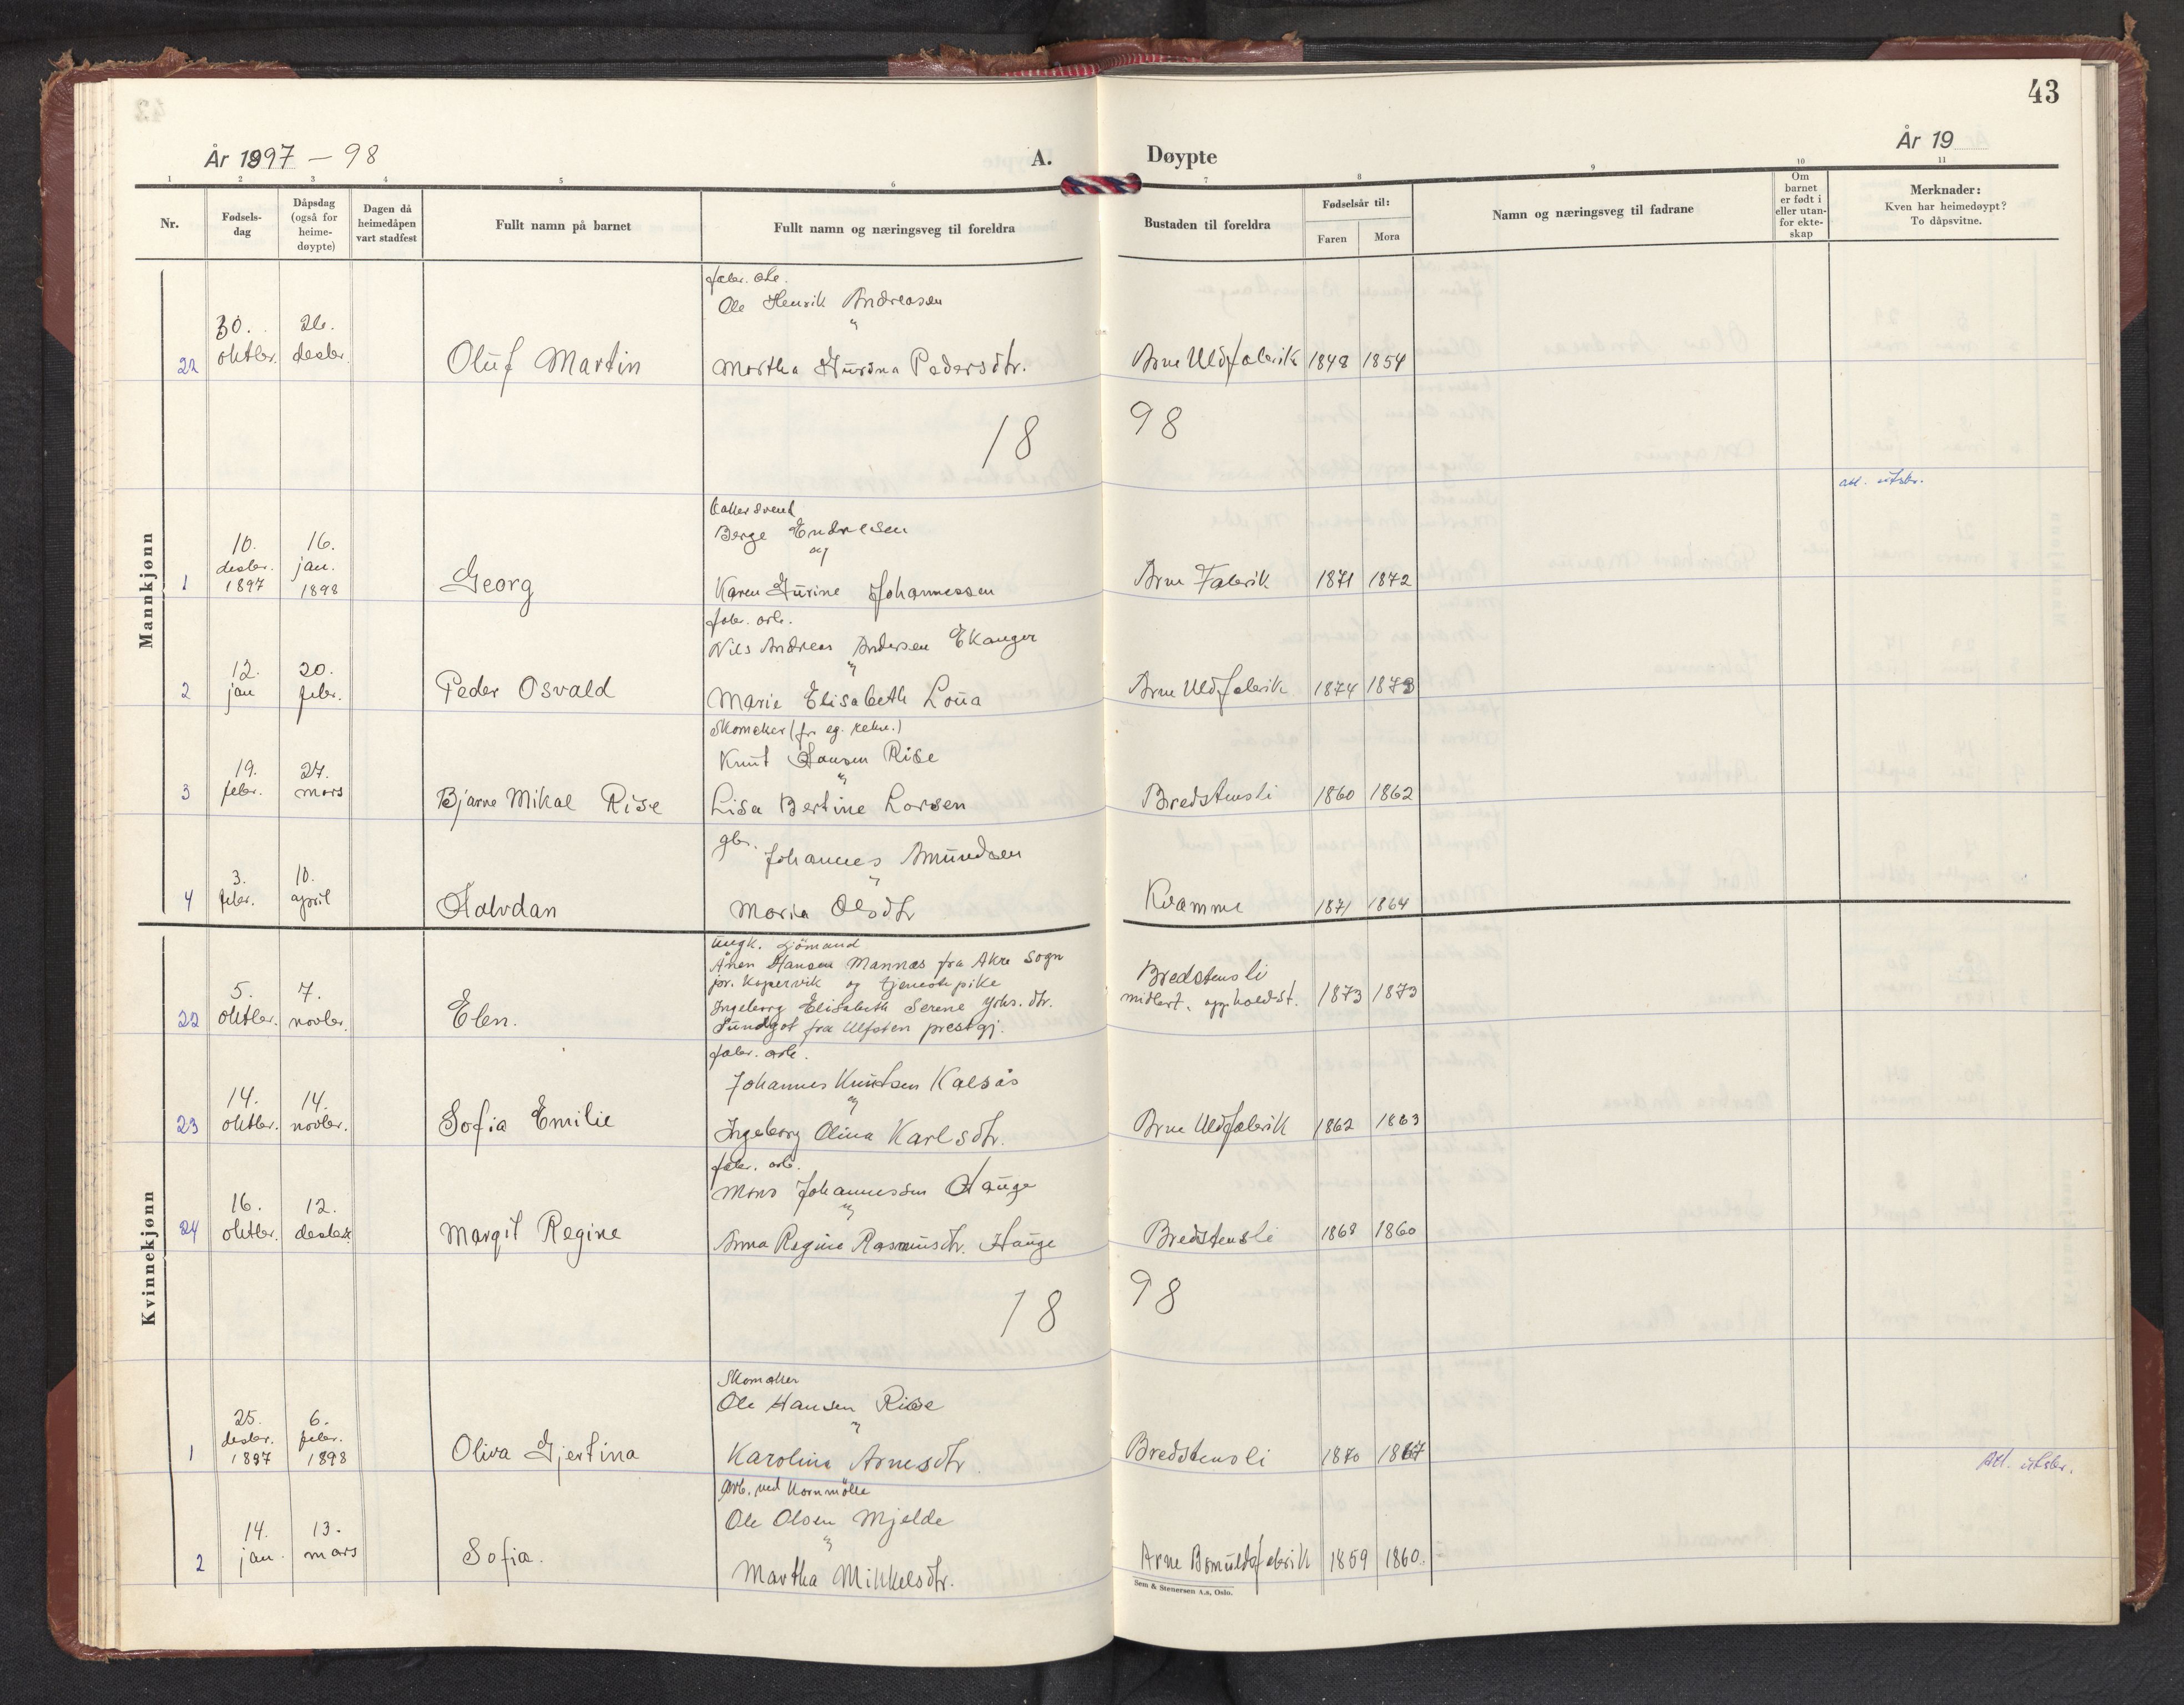 43
År 1897 - 98
A.
Døypte
År 19
1 2 3 4 5 6 7 8 9 10 11
Nr.
Fødsels-
dag
Dåpsdag
(også for
heime-
døypte)
Dagen då
heimedåpen
vart stadfest
Fullt namn på barnet
Fullt namn og næringsveg til foreldra
Bustaden til foreldra
Fødselsår til:
Faren Mora
Namn og næringsveg til fadrane
Om
barnet
er født i
eller utan-
for ekte-
skap
Merknader:
Kven har heimedøypt?
To dåpsvitne.
Mannkjønn
fabr. arb.
Ole Henrik Andreasen
"
22 30. oktbr. 26. desbr. Oluf Martin Martha Gurina Pedersdtr. Arne Uldfabrik 1848 1854
18 98
att. utskr.
bakersvend
Berge Endresen
og
1 10. desbr. 1897 16. jan. 1898 Georg Karen Gurine Johannessen Arne Fabrik 1871 1872
fabr. arb.
Nils Andreas Andersen Ekanger
"
2 12. jan 20. febr. Peder Osvald Marie Elisabeth Loua Arne Uldfabrik 1874 1873
Skomaker (for eg. rekn.)
Knut Hansen Rise
"
3 19. febr. 27. mars Bjarne Mikal Rise Lisa Bertine Larsen Bredstensli 1860 1862
gbr.
Johannes Amundsen
"
4 3. febr. 10. april Halvdan Maria Olsdtr Kvamme 1871 1864
Kvinnekjønn
ungk. sjömand
Ånen Hansen Mannes fra Akre Sogn
pr. Kopervik og tjenestepike
Ingeborg Elisabeth Serene Johs. dtr.
Sundgot fra Ulfsten prestgj.
22 5. oktbr. 7. novbr. Elen. Bredstensli
midlert. oppholdst. 1873 1873
fabr. arb.
Johannes Knutsen Kalsås
og
23 14. oktbr. 14. novbr. Sofia Emilie Ingeborg Olina Karlsdtr. Arne Uldfabrik 1862 1863
fabr. arb.
Mons Johannessen Hauge
og
24 16. oktbr. 12. desbr. Margit Regine Anna Regine Rasmusdtr. Hauge Bredstensli 1868 1860
18 98
Skomaker
Ole Hansen Rise
"
1 25. desbr. 1897 6. febr. 1898 Oliva Gjertina Karolina Arnesdtr. Bredstensli 1870 1867
Att. utskr.
Arb. ved Kornmölle
Ole Olsen Mjelde
"
2 14. jan. 13. mars Sofia. Martha Mikkelsdtr. Arne Bomuldsfabrik 1859 1860.
Sem & Stenersen A.s, Oslo.